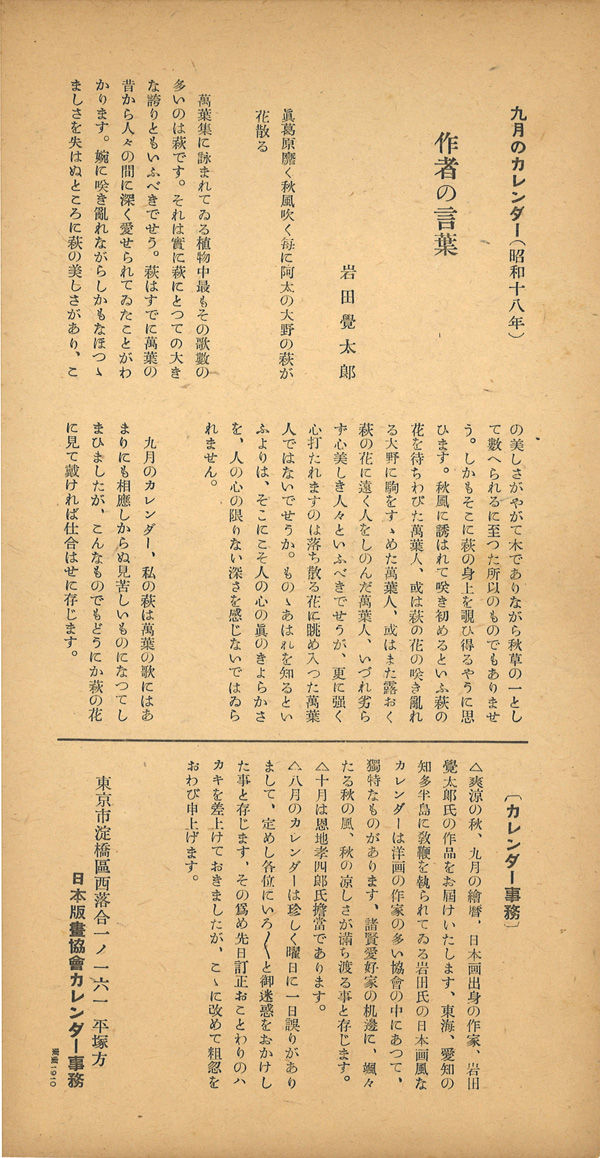 九月のカレンダー(昭和十八年)
作者の言葉
岩田覺太郎
眞葛原靡く秋風吹く每に阿太の大野の萩が
花散る
萬葉集に詠まれてゐる植物中最もその歌數の
多いのは萩です。それは實に萩にとつての大き
な誇りともいふべきでせう。萩はすでに萬葉の
昔から人々の間に深く愛せられてゐたことがわ
かります。婉に咲き亂れながらしかもなほつゝ
ましさを失はぬところに萩の美しさがあり、こ
の美しさがやがて木でありながら秋草の一とし
て數へられるに至つた所以のものでもありませ
う。しかもそこに萩の身上を覗ひ得るやうに思
ひます。秋風に誘はれて咲き初めるといふ萩の
花を待ちわびた萬葉人、或は萩の花の咲き亂れ
る大野に駒をすゝめた萬葉人、或はまた露おく
萩の花に遠く人をしのんだ萬葉人、いづれ劣ら
ず心美しき人々といふべきでせうが、更に强く
心打たれますのは落ち散る花に眺め入つた萬葉
人ではないでせうか。ものゝあはれを知るとい
ふよりは、そこにこそ人の心の眞のきよらかさ
を、人の心の限りない深さを感じないではゐら
れません。
九月のカレンダー、私の萩は萬葉の歌にはあ
まりにも相應しからぬ見苦しいものになつてし
まひましたが、こんなものでもどうにか萩の花
に見て戴ければ仕合はせに存じます。
〔カレンダー事務〕
△爽凉の秋、九月の繪曆、日本画出身の作家、岩田
覺太郎氏の作品をお屆けいたします、東海、愛知の
知多半島に敎鞭を執られてゐる岩田氏の日本画風な
カレンダーは洋画の作家の多い協會の中にあつて、
獨特なものがあります、諸賢愛好家の机邊に、颯々
たる秋の風、秋の凉しさが滿ち渡る事と存じます。
△十月は恩地孝四郎氏擔當であります。
△八月のカレンダーは珍しく曜日に一日誤りがあり
まして、定めし各位にいろ〱と御迷惑をおかけし
た事と存じます、その爲め先日訂正おことわりのハ
カキを差上げておきましたが、こゝに改めて粗忽を
おわび申上げます。
東京市淀橋區西落合一ノ一六一 平塚方
日本版畫協會カレンダー事務
1910